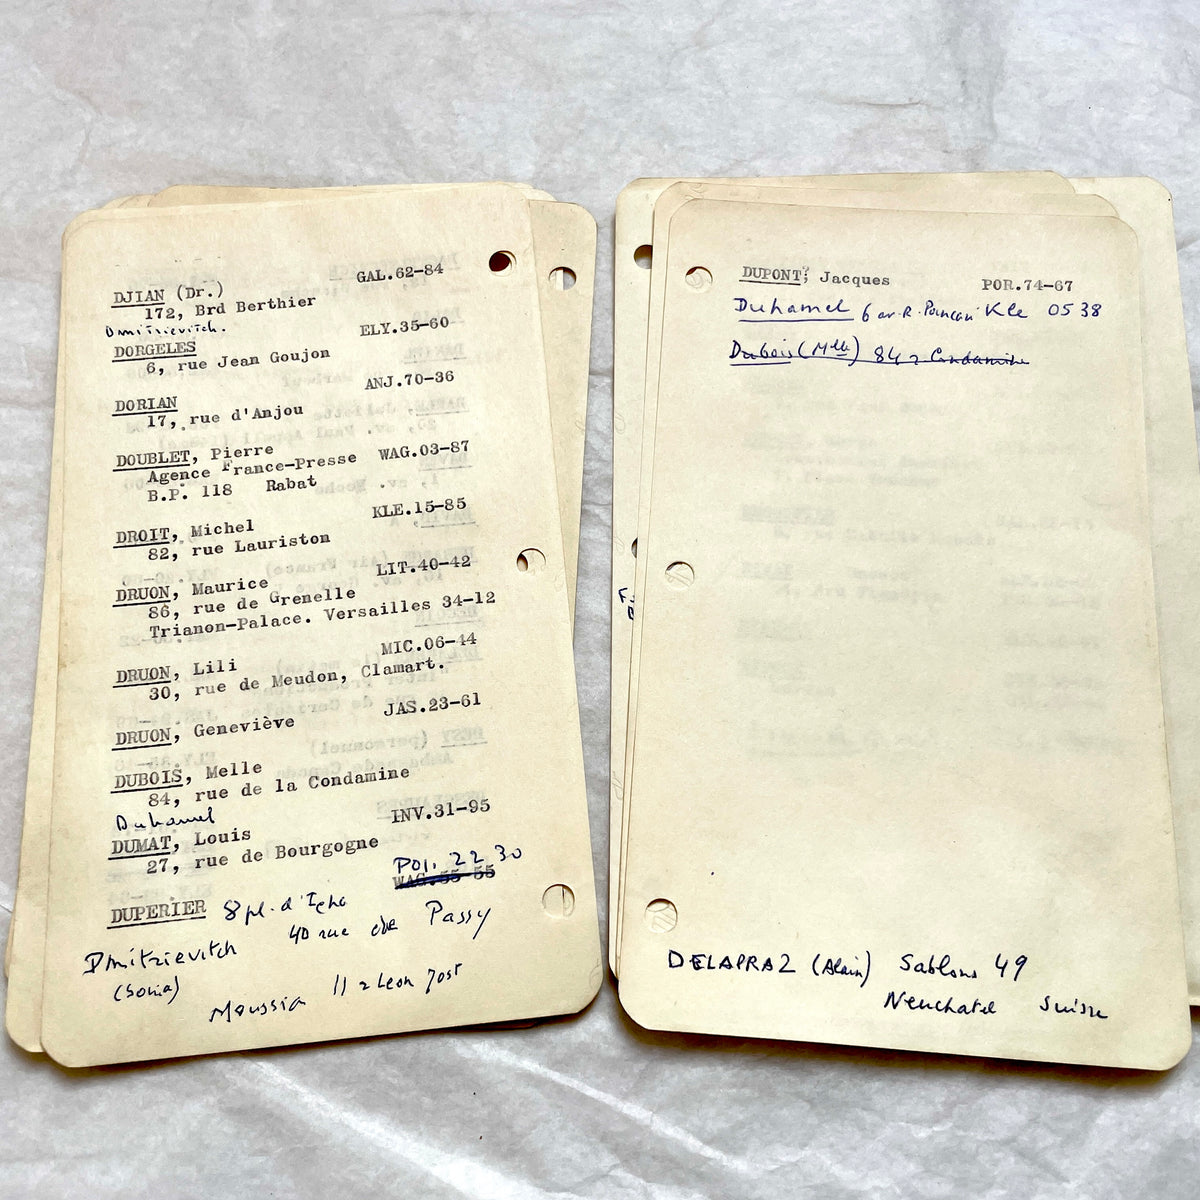 GAL.62-84
DJIAN (Dr.)
172, Brd Berthier
Dmitrievitch.
ELY.35-60
DORGELES
6, rue Jean Goujon
ANJ.70-36
DORIAN
17, rue d'Anjou
DOUBLET, Pierre
WAG.03-87
Agence France-Presse
B.P. 118 Rabat
KLE.15-85
DROIT, Michel
82, rue Lauriston
LIT.40-42
DRUON, Maurice
86, rue de Grenelle
Trianon-Palace. Versailles 34-12
MIC.06-44
DRUON, Lili
30, rue de Meudon, Clamart.
JAS.23-61
DRUON, Geneviève
DUBOIS, Melle
84, rue de la Condamine
Duhamel
INV.31-95
DUMAT, Louis
27, rue de Bourgogne
POI. 22 30
WAG.55-55
DUPERIER 8 pl. d'Iena
40 rue de Passy
Dmitrievitch
(Sonia)
Moussia 11 r Leon Jost
DUPONT, Jacques POR.74-67
Duhamel 6 av. R. Poincaré Kle 05 38
Dubois (Mlle) 84 r Condamine
DELAPRAZ (Alain) Sablons 49
Neuchatel Suisse